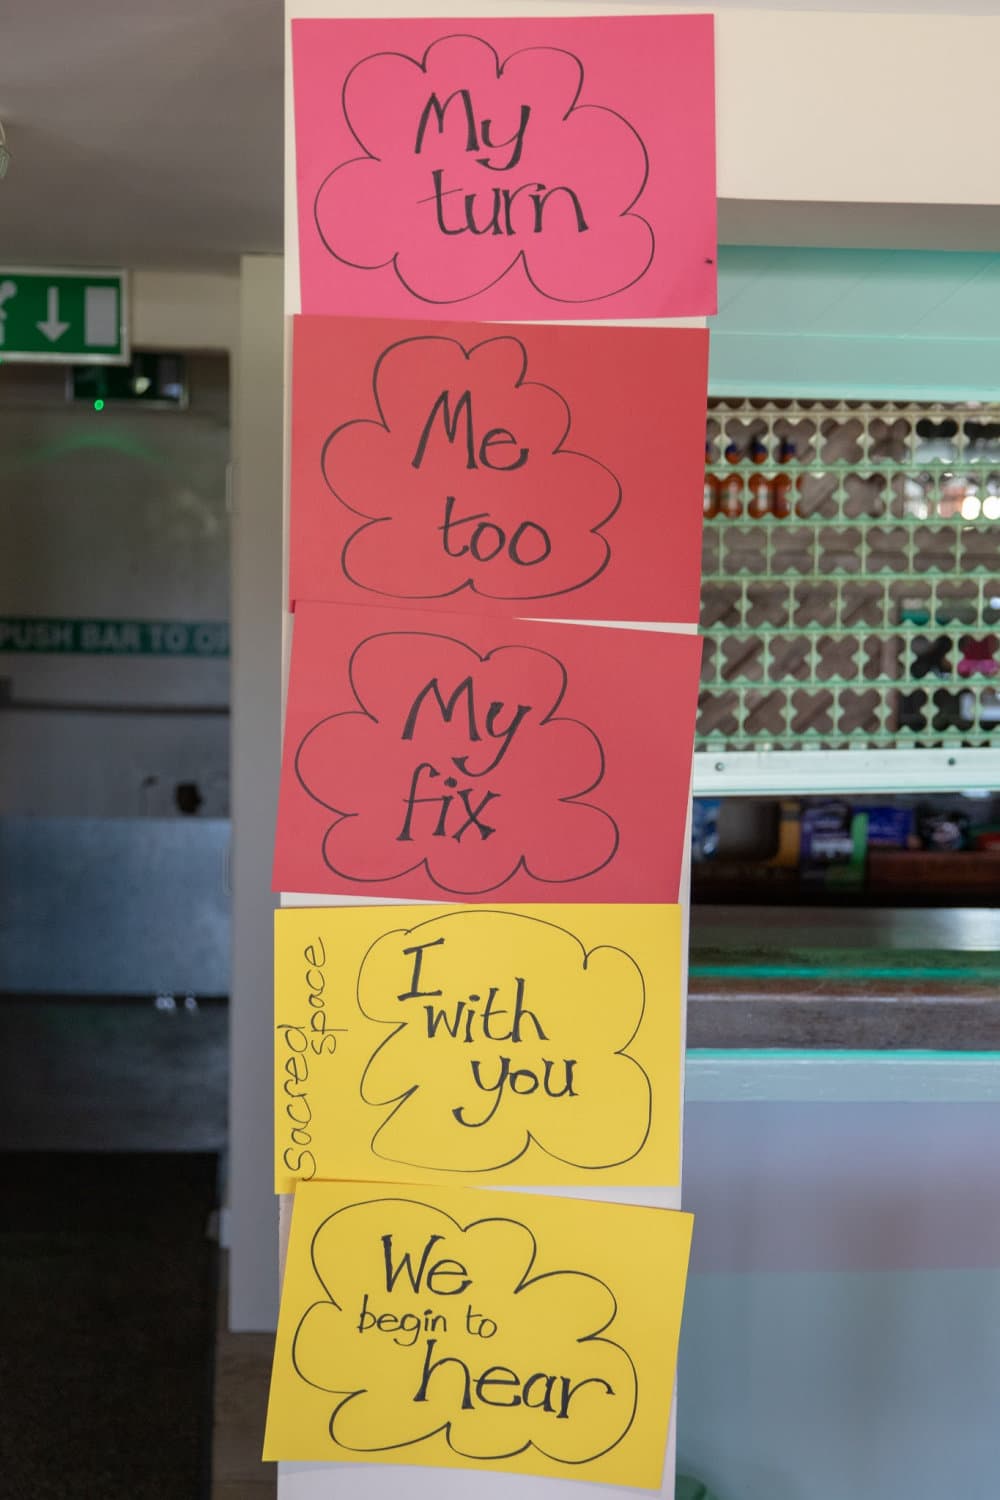 My
turn
Me
too
My
fix
Sacred
space
I
with
you
We
begin to
hear
PUSH BAR TO